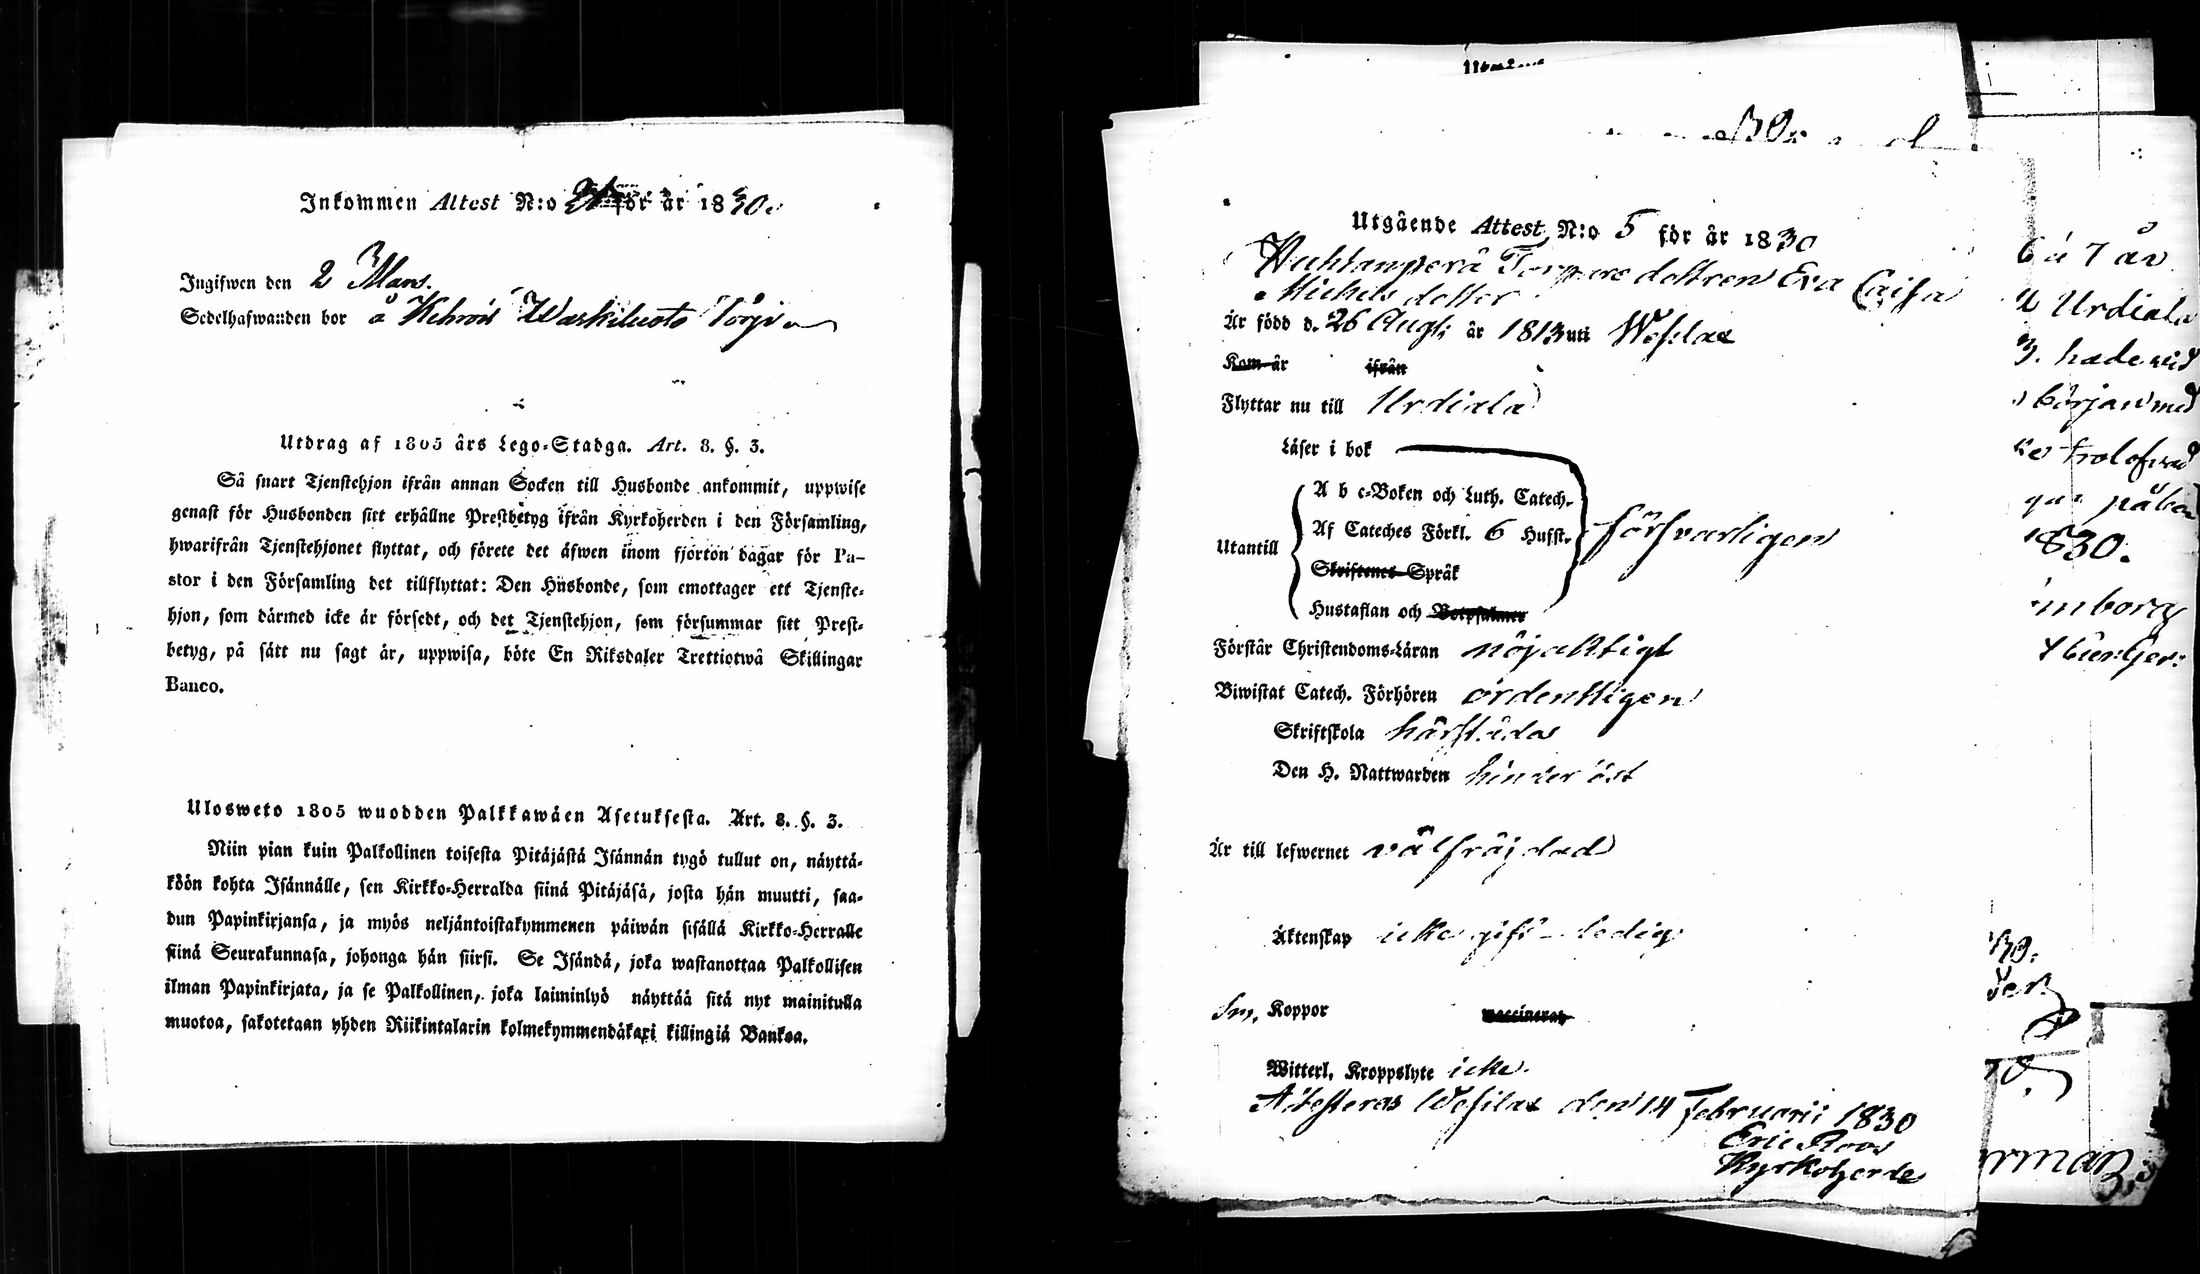 Inkommen Attest N:o för år 1830.
Ingifwen den 2 Mars.
Sedelhafwanden bor å Kehrois Waskiluoto Torp
Utdrag af 1805 års Lego-Stadga. Art. 8. §. 3.
Så snart Tjenstehjon ifrån annan Socken till Husbonde ankommit, uppwise
genast för Husbonden sitt erhållne Prestbetyg ifrån Kyrkoherden i den Församling,
hwarifrån Tjenstehjonet flyttat, och förete det äfwen inom fjorton dagar för Pa-
stor i den Församling det tillflyttat: Den Husbonde, som emottager ett Tjenste-
hjon, som därmed icke är försedt, och det Tjenstehjon, som försummar sitt Prest-
betyg, på sätt nu sagt är, uppwisa, böte En Riksdaler Trettiotwå Skillingar
Banco.
Ulosweto 1805 wuodden Palkkawäen Asetuksesta. Art. 8. §. 3.
Niin pian kuin Palkollinen toisesta Pitäjästä Isännän tygö tullut on, näyttä-
köön kohta Isännälle, sen Kirkko-Herralda siinä Pitäjäsä, josta hän muutti, saa-
dun Papinkirjansa, ja myös neljäntoistakymmenen päiwän sisällä Kirkko-Herralle
siinä Seurakunnasa, johonga hän siirsi. Se Isändä, joka wastanottaa Palkollisen
ilman Papinkirjata, ja se Palkollinen, joka laiminlyö näyttää sitä nyt mainitulla
muotoa, sakotetaan yhden Riikintalarin kolmekymmendäkaxi killingiä Bankoa.
Utgående Attest N:o 5 för år 1830
Huhtanperä Torpare dottren Eva Caisa
Michels dotter
Är född d. 26 Aug. år 1813 uti Wesilax
Kom år ifrån
Flyttar nu till Urdiala
Läser i bok
A b c-Boken och Luth. Catech.
Af Cateches Förkl. 6 Hufst.
försvarligen
Utantill
Skriftenes Språk
Hustaflan och Botpsalmer
Förstår Christendoms-Läran nöjaktigt
Biwistat Catech. Förhören ordentligen
Skriftskola härstädes
Den H. Nattwarden
Är till lefwernet välfräjdad
Äktenskap icke gift – ledig
Koppor vaccinerad
Witterl. Kroppslyte icke
Attesteras Wesilax den 14 Februarii 1830
Eric Roos
Kyrkoherde
6 á 7 år
Urdiala
1830.